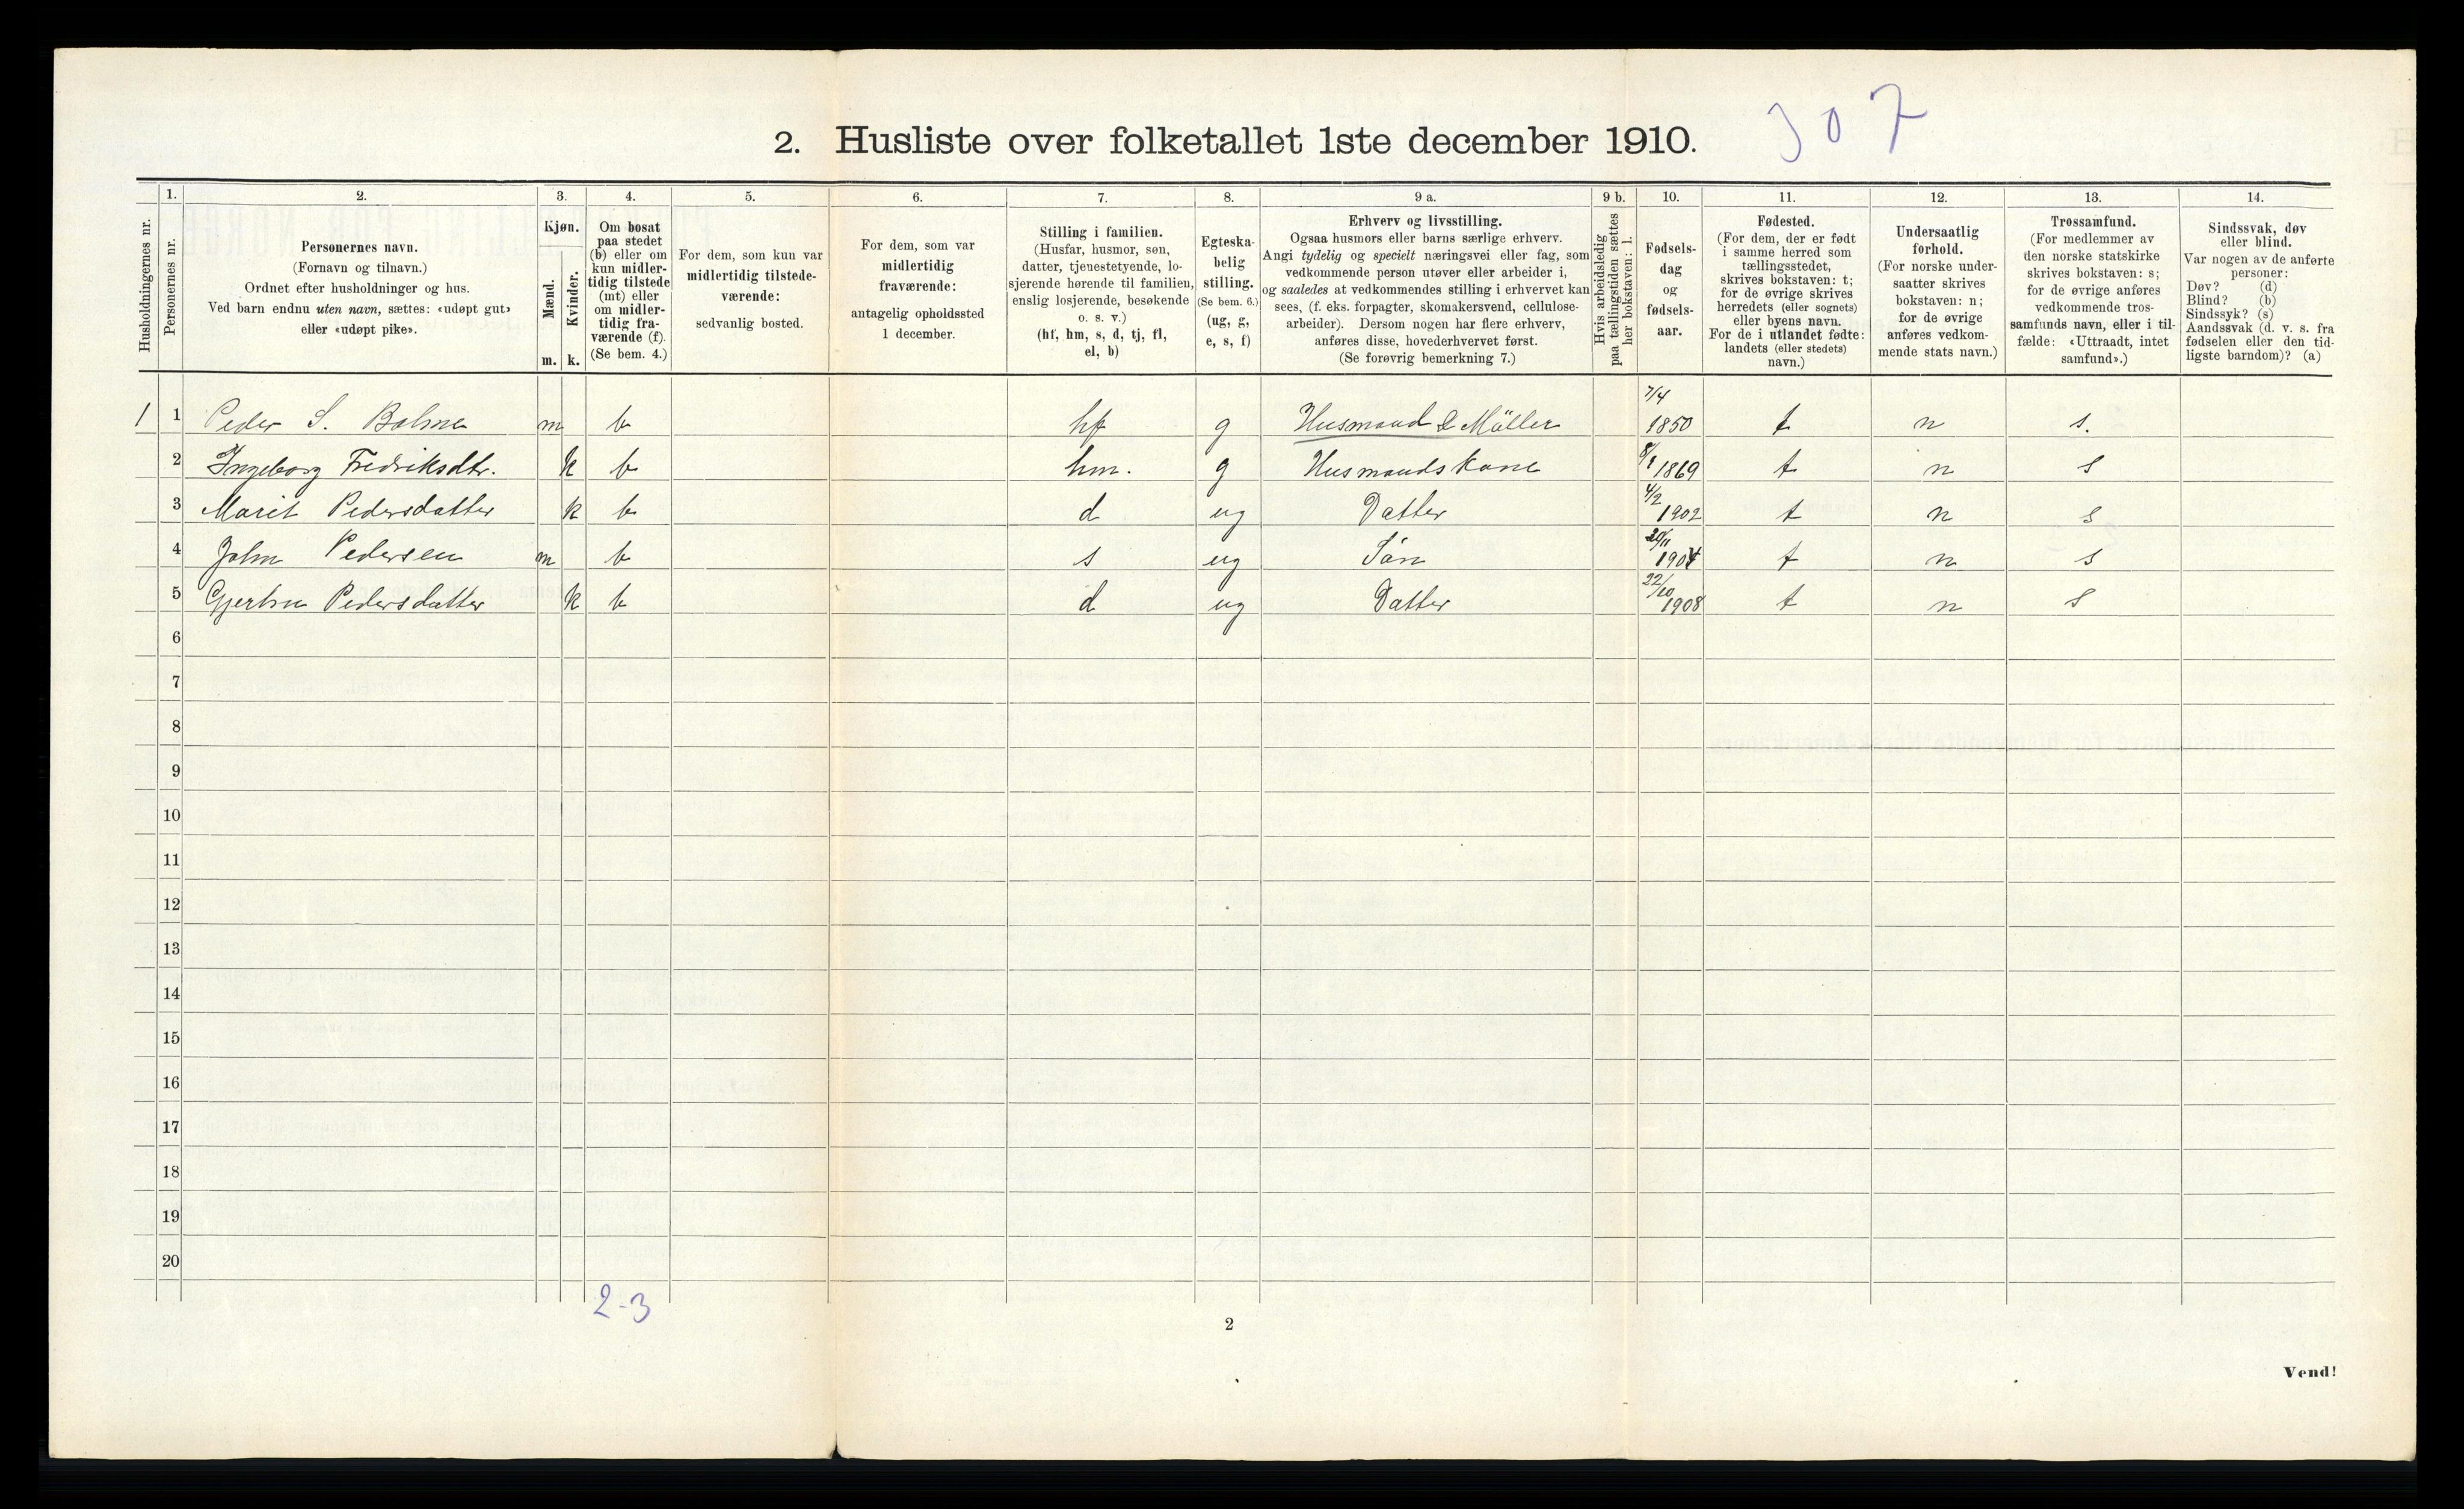 307
2. Husliste over folketallet 1ste december 1910.
Husholdningernes nr.
1.
Personernes nr.
2.
Personernes navn.
(Fornavn og tilnavn.)
Ordnet efter husholdninger og hus.
Ved barn endnu uten navn, sættes: «udøpt gut»
eller «udøpt pike».
3.
Kjøn.
Mænd.
Kvinder.
m. k.
4.
Om bosat
paa stedet
(b) eller om
kun midler-
tidig tilstede
(mt) eller
om midler-
tidig fra-
værende (f).
(Se bem. 4.)
5.
For dem, som kun var
midlertidig tilstede-
værende:
sedvanlig bosted.
6.
For dem, som var
midlertidig
fraværende:
antagelig opholdssted
1 december.
7.
Stilling i familien.
(Husfar, husmor, søn,
datter, tjenestetyende, lo-
sjerende hørende til familien,
enslig losjerende, besøkende
o. s. v.)
(hf, hm, s, d, tj, fl,
el, b)
8.
Egteska-
belig
stilling.
(Se bem. 6.)
(ug, g,
e, s, f)
9 a.
Erhverv og livsstilling.
Ogsaa husmors eller barns særlige erhverv.
Angi tydelig og specielt næringsvei eller fag, som
vedkommende person utøver eller arbeider i,
og saaledes at vedkommendes stilling i erhvervet kan
sees, (f. eks. forpagter, skomakersvend, cellulose-
arbeider). Dersom nogen har flere erhverv,
anføres disse, hovederhvervet først.
(Se forøvrig bemerkning 7.)
9 b.
Hvis arbeidsledig
paa tællingstiden sættes
her bokstaven: l.
10.
Fødsels-
dag
og
fødsels-
aar.
11.
Fødested.
(For dem, der er født
i samme herred som
tællingsstedet,
skrives bokstaven: t;
for de øvrige skrives
herredets (eller sognets)
eller byens navn.
For de i utlandet fødte:
landets (eller stedets)
navn.)
12.
Undersaatlig
forhold.
(For norske under-
saatter skrives
bokstaven: n;
for de øvrige
anføres vedkom-
mende stats navn.)
13.
Trossamfund.
(For medlemmer av
den norske statskirke
skrives bokstaven: s;
for de øvrige anføres
vedkommende tros-
samfunds navn, eller i til-
fælde: «Uttraadt, intet
samfund».)
14.
Sindssvak, døv
eller blind.
Var nogen av de anførte
personer:
Døv? (d)
Blind? (b)
Sindssyk? (s)
Aandssvak (d. v. s. fra
fødselen eller den tid-
ligste barndom)? (a)
1 1 Peder S. Bolme m b hf g Husmand & Müller 7/4 1850 t n s.
2 Ingeborg Fredriksdtr. k b hm. g Husmandskone 8/1 1869 t n s
3 Marit Pedersdatter k b d ug Datter 4/2 1902 t n s
4 John Pedersen m b s ug Sön 1904 t n s
5 Pedersdatter k b d ug Datter 22/10 1908 t n s
6
7
8
9
10
11
12
13
14
15
16
17
18
19
20
2-3
2
Vend!